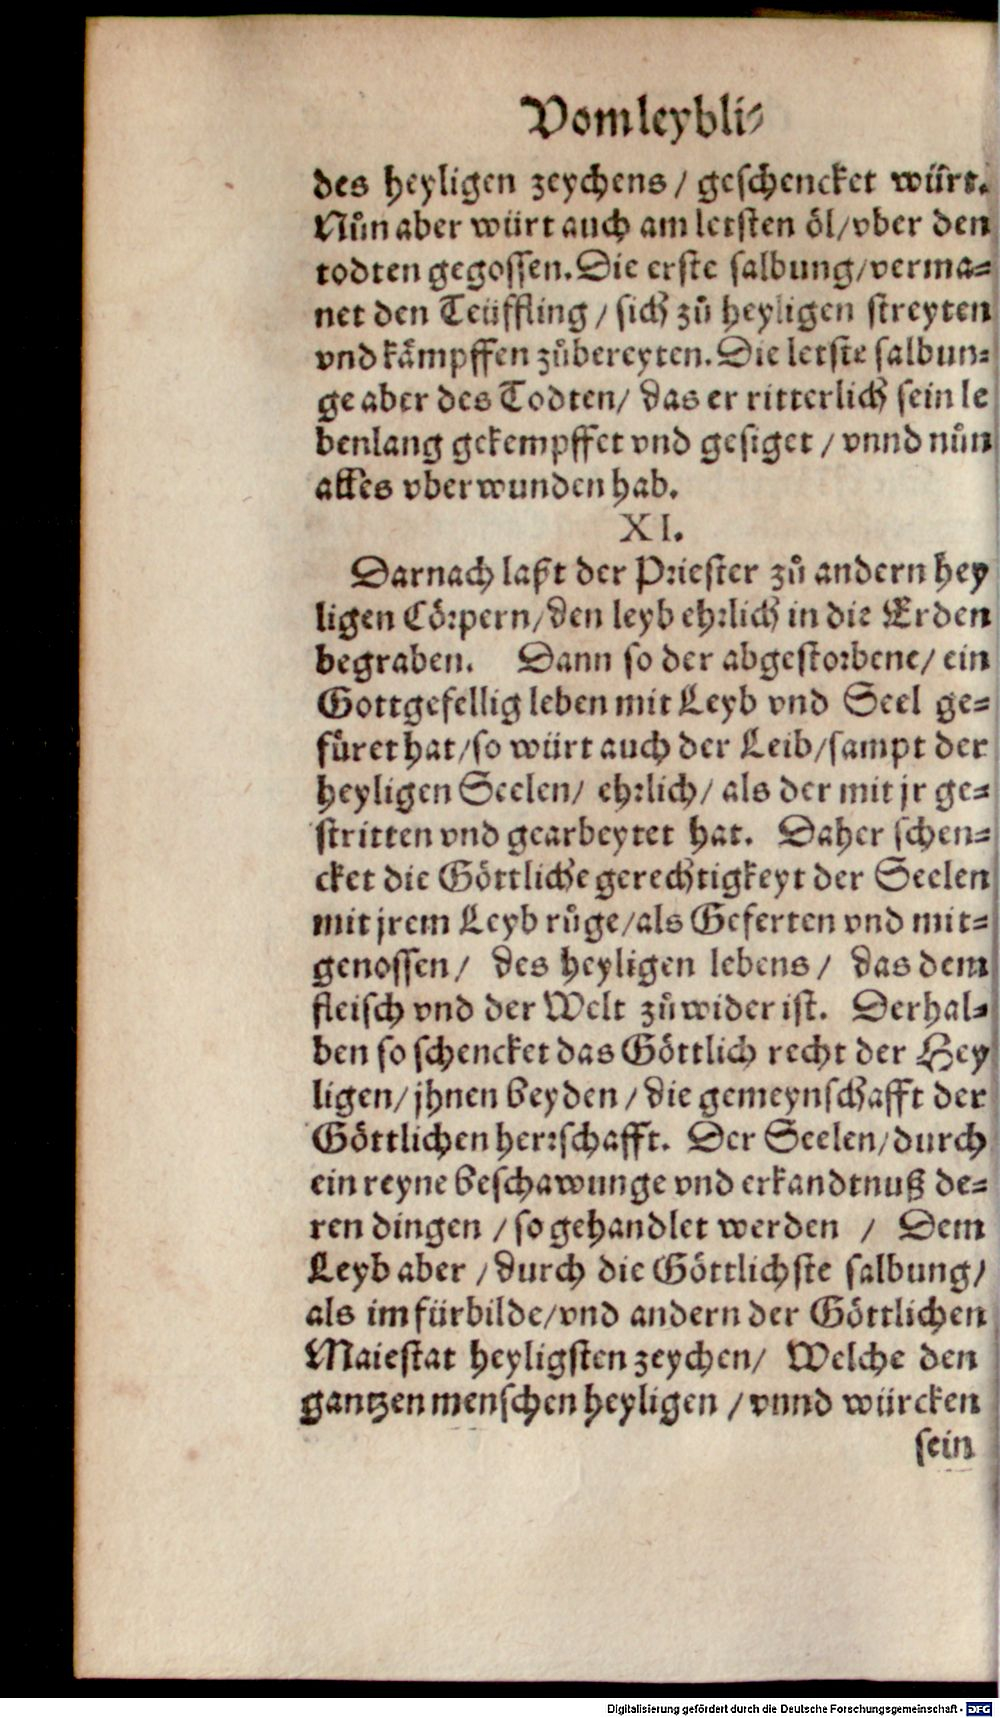 Vom leybli⸗
des heyligen zeychens / geschencket würt.
Nůn aber würt auch am letsten öl / vber den
todten gegossen. Die erste salbung / verma⸗
net den Teüffling / sich zů heyligen streyten
vnd kämpffen zůbereyten. Die letste salbun⸗
ge aber des Todten / das er ritterlich sein le
benlang gekempffet vnd gesiget / vnnd nůn
alles vberwunden hab.
XI.
Darnach laßt der Priester zů andern hey
ligen Cörpern / den leyb ehrlich in die Erden
begraben. Dann so der abgestorbene / ein
Gottgefellig leben mit Leyb vnd Seel ge⸗
füret hat / so würt auch der Leib / sampt der
heyligen Seelen / ehrlich / als der mit jr ge⸗
stritten vnd gearbeytet hat. Daher schen⸗
cket die Göttliche gerechtigkeyt der Seelen
mit jrem Leyb růge / als Geferten vnd mit⸗
genossen / des heyligen lebens / das dem
fleisch vnd der Welt zůwider ist. Derhal⸗
ben so schencket das Göttlich recht der Hey
ligen / jhnen beyden / die gemeynschafft der
Göttlichen herrschafft. Der Seelen / durch
ein reyne beschawunge vnd erkandtnuß de⸗
ren dingen / so gehandlet werden / Dem
Leyb aber / durch die Göttlichste salbung /
als im fürbilde / vnd andern der Göttlichen
Maiestat heyligsten zeychen / Welche den
gantzen menschen heyligen / vnnd würcken
sein
Digitalisierung gefördert durch die Deutsche Forschungsgemeinschaft - DFG